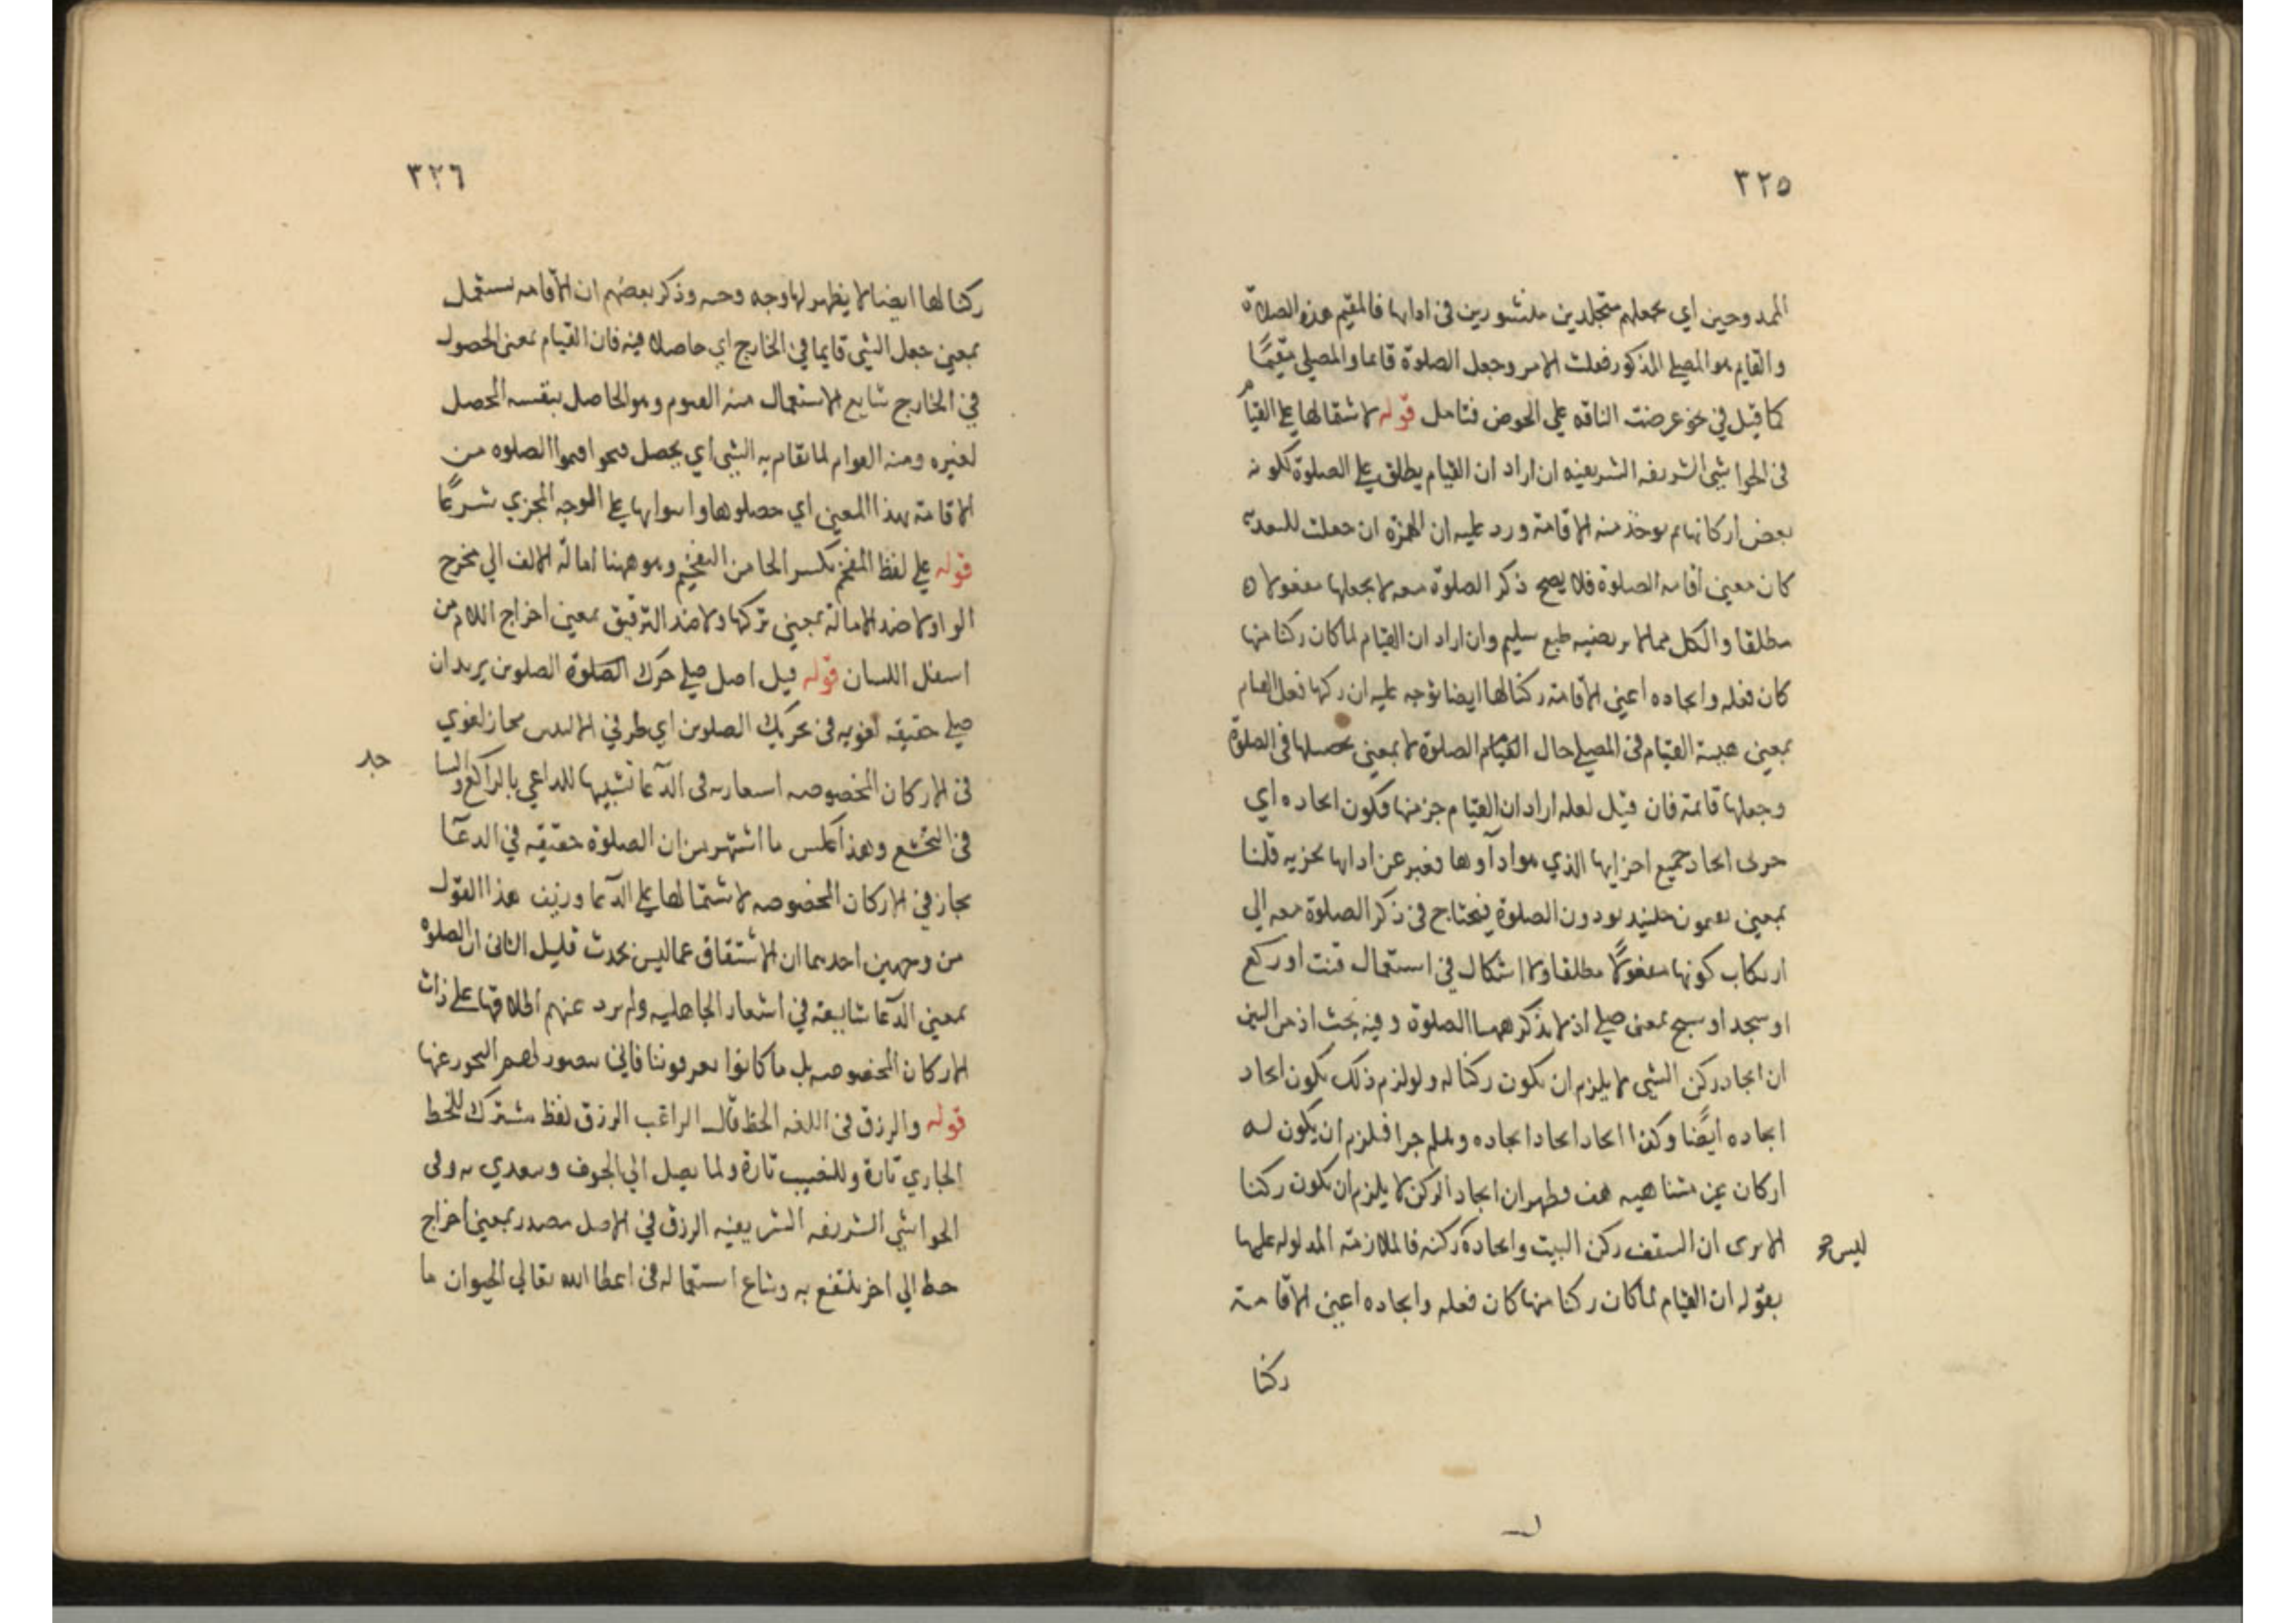 ٣٢٥
الممدوحين اي بجعلهم متجلدين متشورين في ادايها فالمقيم هذه الصلاة
والقايم هو المصلي المذكور فعلت الامر وجعل الصلوة قايما والمصلي مقيمًا
كما قيل في نحو عرضت الناقه علي الحوض فتامل قوله لاشتمالها علي القيام
في الحواشي الشريفه الشريفيه ان اراد ان القيام يطلق علي الصلوة لكونه
بعض أركانها ثم يوخذ منه الاقامة ورد عليه ان الهمزه ان جعلت للتعدية
كان معني أقامه الصلوة فلا يصح ذكر الصلوة معه الا بجعلها مفعولا
مطلقا والكل مما لا يرتضيه طبع سليم وان اراد ان القيام لما كان ركنا منها
كان فعله وايجاده اعني الاقامة ركنا لها ايضا توجه عليه ان ركنها فعل القيام
بمعني هيئة القيام في المصلي حال القيام الصلوة لا بمعني تحصيلها في الصلوة
وجعلها قائمة فان قيل لعله اراد ان القيام جز منها فيكون ايجاده اي
جزئ ايجاد جميع اجزايها الذي هو ادآوها فعبر عن ادايها بجزيه قلنا
بمعني يقيمون حينيذ يودون الصلوة فيحتاج في ذكر الصلوة معه الي
ارتكاب كونها مفعولًا مطلقا ولا اشكال في استعمال قنت او ركع
او سجد او سبح بمعني صلي اذ لا يذكر معها الصلوة وفيه بحث اذ من البين
ان ايجاد ركن الشي لا يلزم ان يكون ركنا له ولو لزم ذلك يكون ايجاد
ايجاده ايضًا وكذا ايجاد ايجاد ايجاده وهلم جرا فيلزم ان يكون له
اركان غير متناهيه هف فظهر ان ايجاد الركن لا يلزم ان يكون ركنا
الا يرى ان السقف ركن البيت وايجاده ركنه فالملازمة المدلوله عليها
ليس هو
بقوله ان القيام لما كان ركنا منها كان فعله وايجاده اعني الاقامة
ركنا
٣٢٦
ركنا لها ايضا لا يظهر لها وجه وحه وذكر بعضهم ان الاقامه تستعمل
بمعني جعل الشي قايما في الخارج اي حاصلا فيه فان القيام بمعني الحصول
في الخارج شايع الاستعمال منه القيوم وهو الحاصل بنفسه المحصل
لغيره ومنه القوام لما تقام به الشي اي يحصل فيحو اقيموا الصلوه من
الاقامة بهذا المعني اي حصلوها واتوا بها علي الوجه المجزي شرعًا
قوله علي لفظ المفخم بكسر الخا من التفخيم وهو ههنا امالة الالف الي مخرج
الواو لا ضد الامالة بمعني تركها ولا ضد الترقيق بمعني اخراج اللام من
اسفل اللسان قوله قيل اصل صلي حرك الصلوة الصلوين يريد ان
صلي حقيقه لغويه في تحريك الصلوين اي طرفي الاليتين مجاز لغوي
في الاركان المخصوصه استعاره في الدعآ تشبيها للداعي بالراكع والسا
جد
في التخشع وهذا عكس ما اشتهر من ان الصلوة حقيقه في الدعآ
مجاز في الاركان المخصوصه لاشتمالها علي الدعآ وزيف هذا القول
من وجهين احدهما ان الاشتقاق عما ليس بحدث قليل الثاني ان الصلوه
بمعني الدعآ شايعة في اشعار الجاهليه ولم يرد عنهم اطلاقها علي ذات
الاركان المخصوصه بل ما كانوا يعرفونها فاني يتصور لهم التجوز عنها
قوله والرزق في اللغه الحظ قال الراغب الرزق لفظ مشترك للحظ
الجاري تارة وللنصيب تارة ولما يصل الي الجوف ويتعدي به وفي
الحواشي الشريفه الشريفيه الرزق في الاصل مصدر بمعني اخراج
حظ الي اخر ينتفع به وشاع استعماله في اعطا الله تعالي الحيوان ما